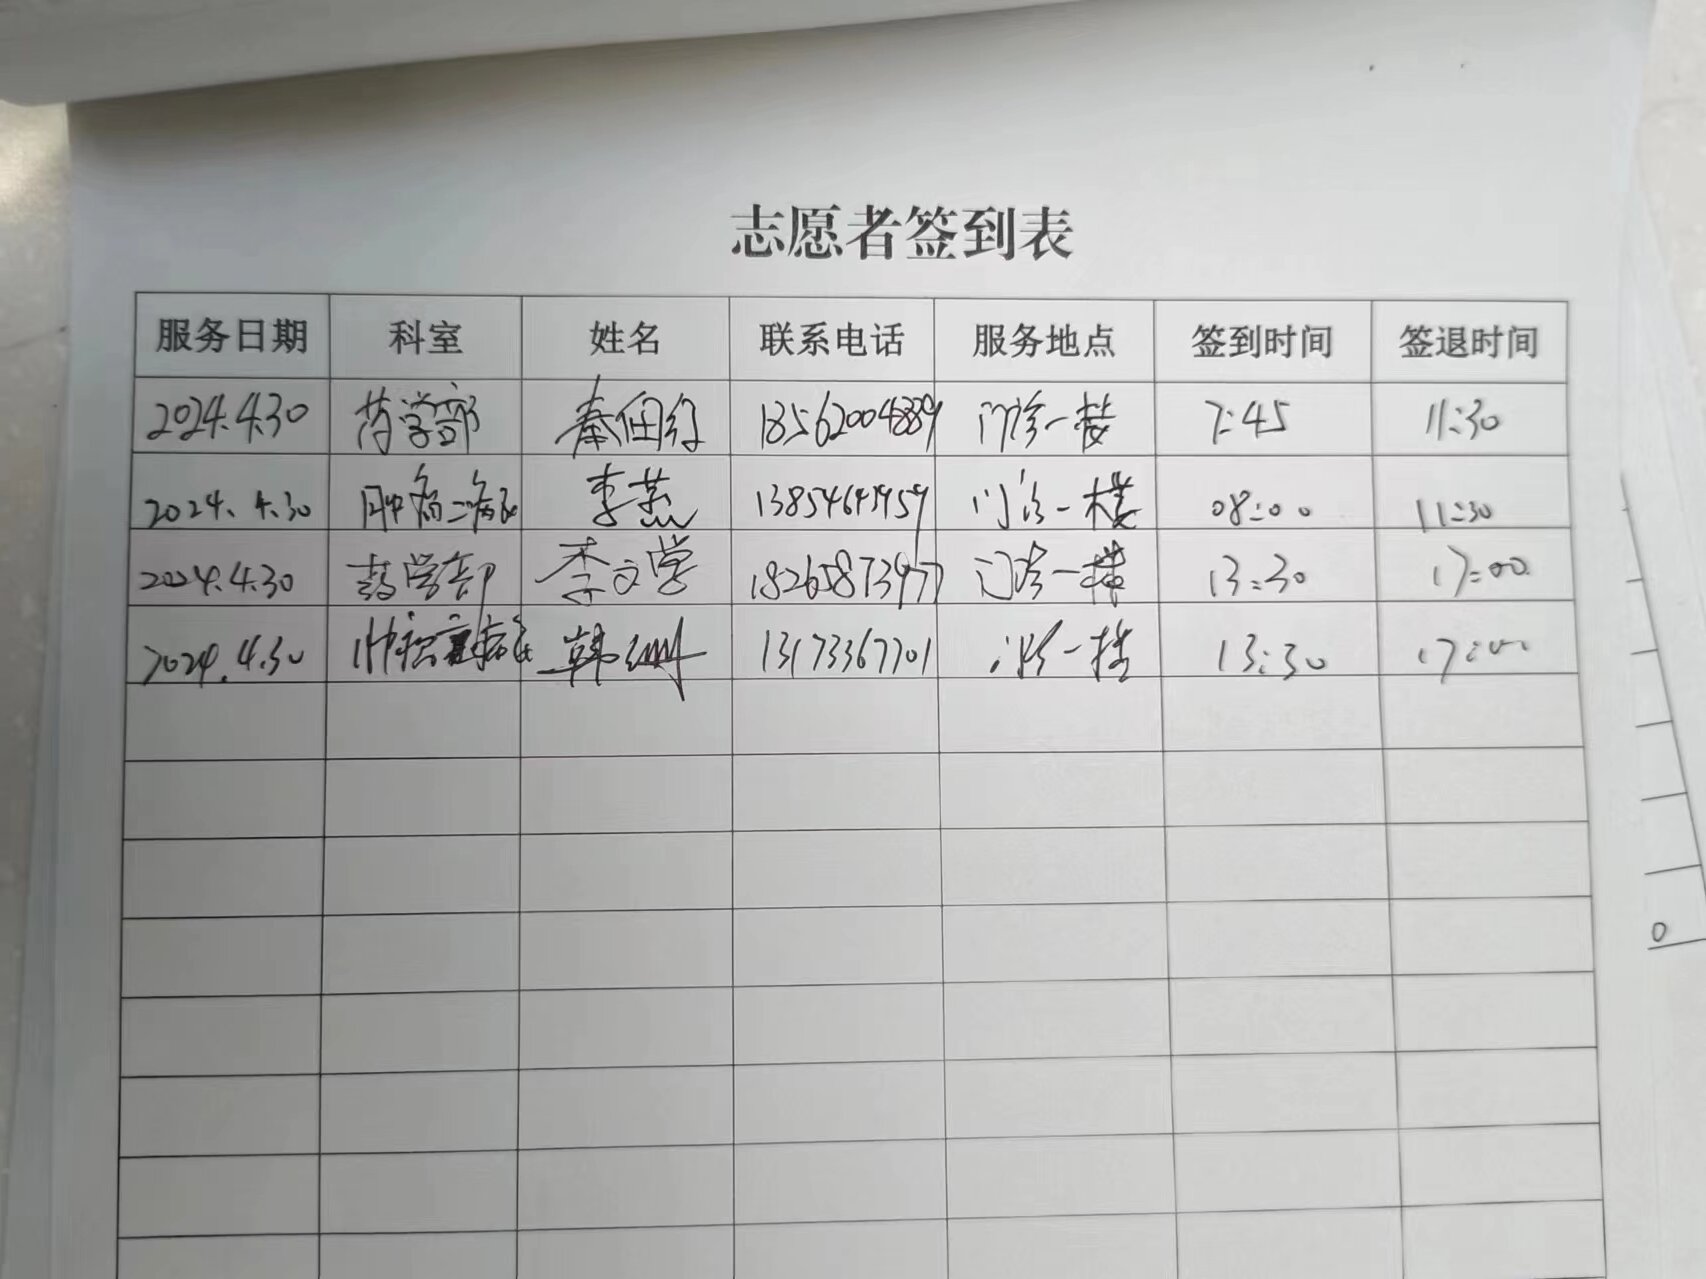 志愿者签到表
服务日期 科室 姓名 联系电话 服务地点 签到时间 签退时间
2024.4.30 药学部 秦 门诊一楼 7:45 11:30
2024.4.30 肿瘤二病区 李燕 门诊一楼 08:00 11:30
2024.4.30 药学部 李文学 门诊一楼 13:30 17:00
2024.4.30 韩 13173367701 门诊一楼 13:30 17:00
0